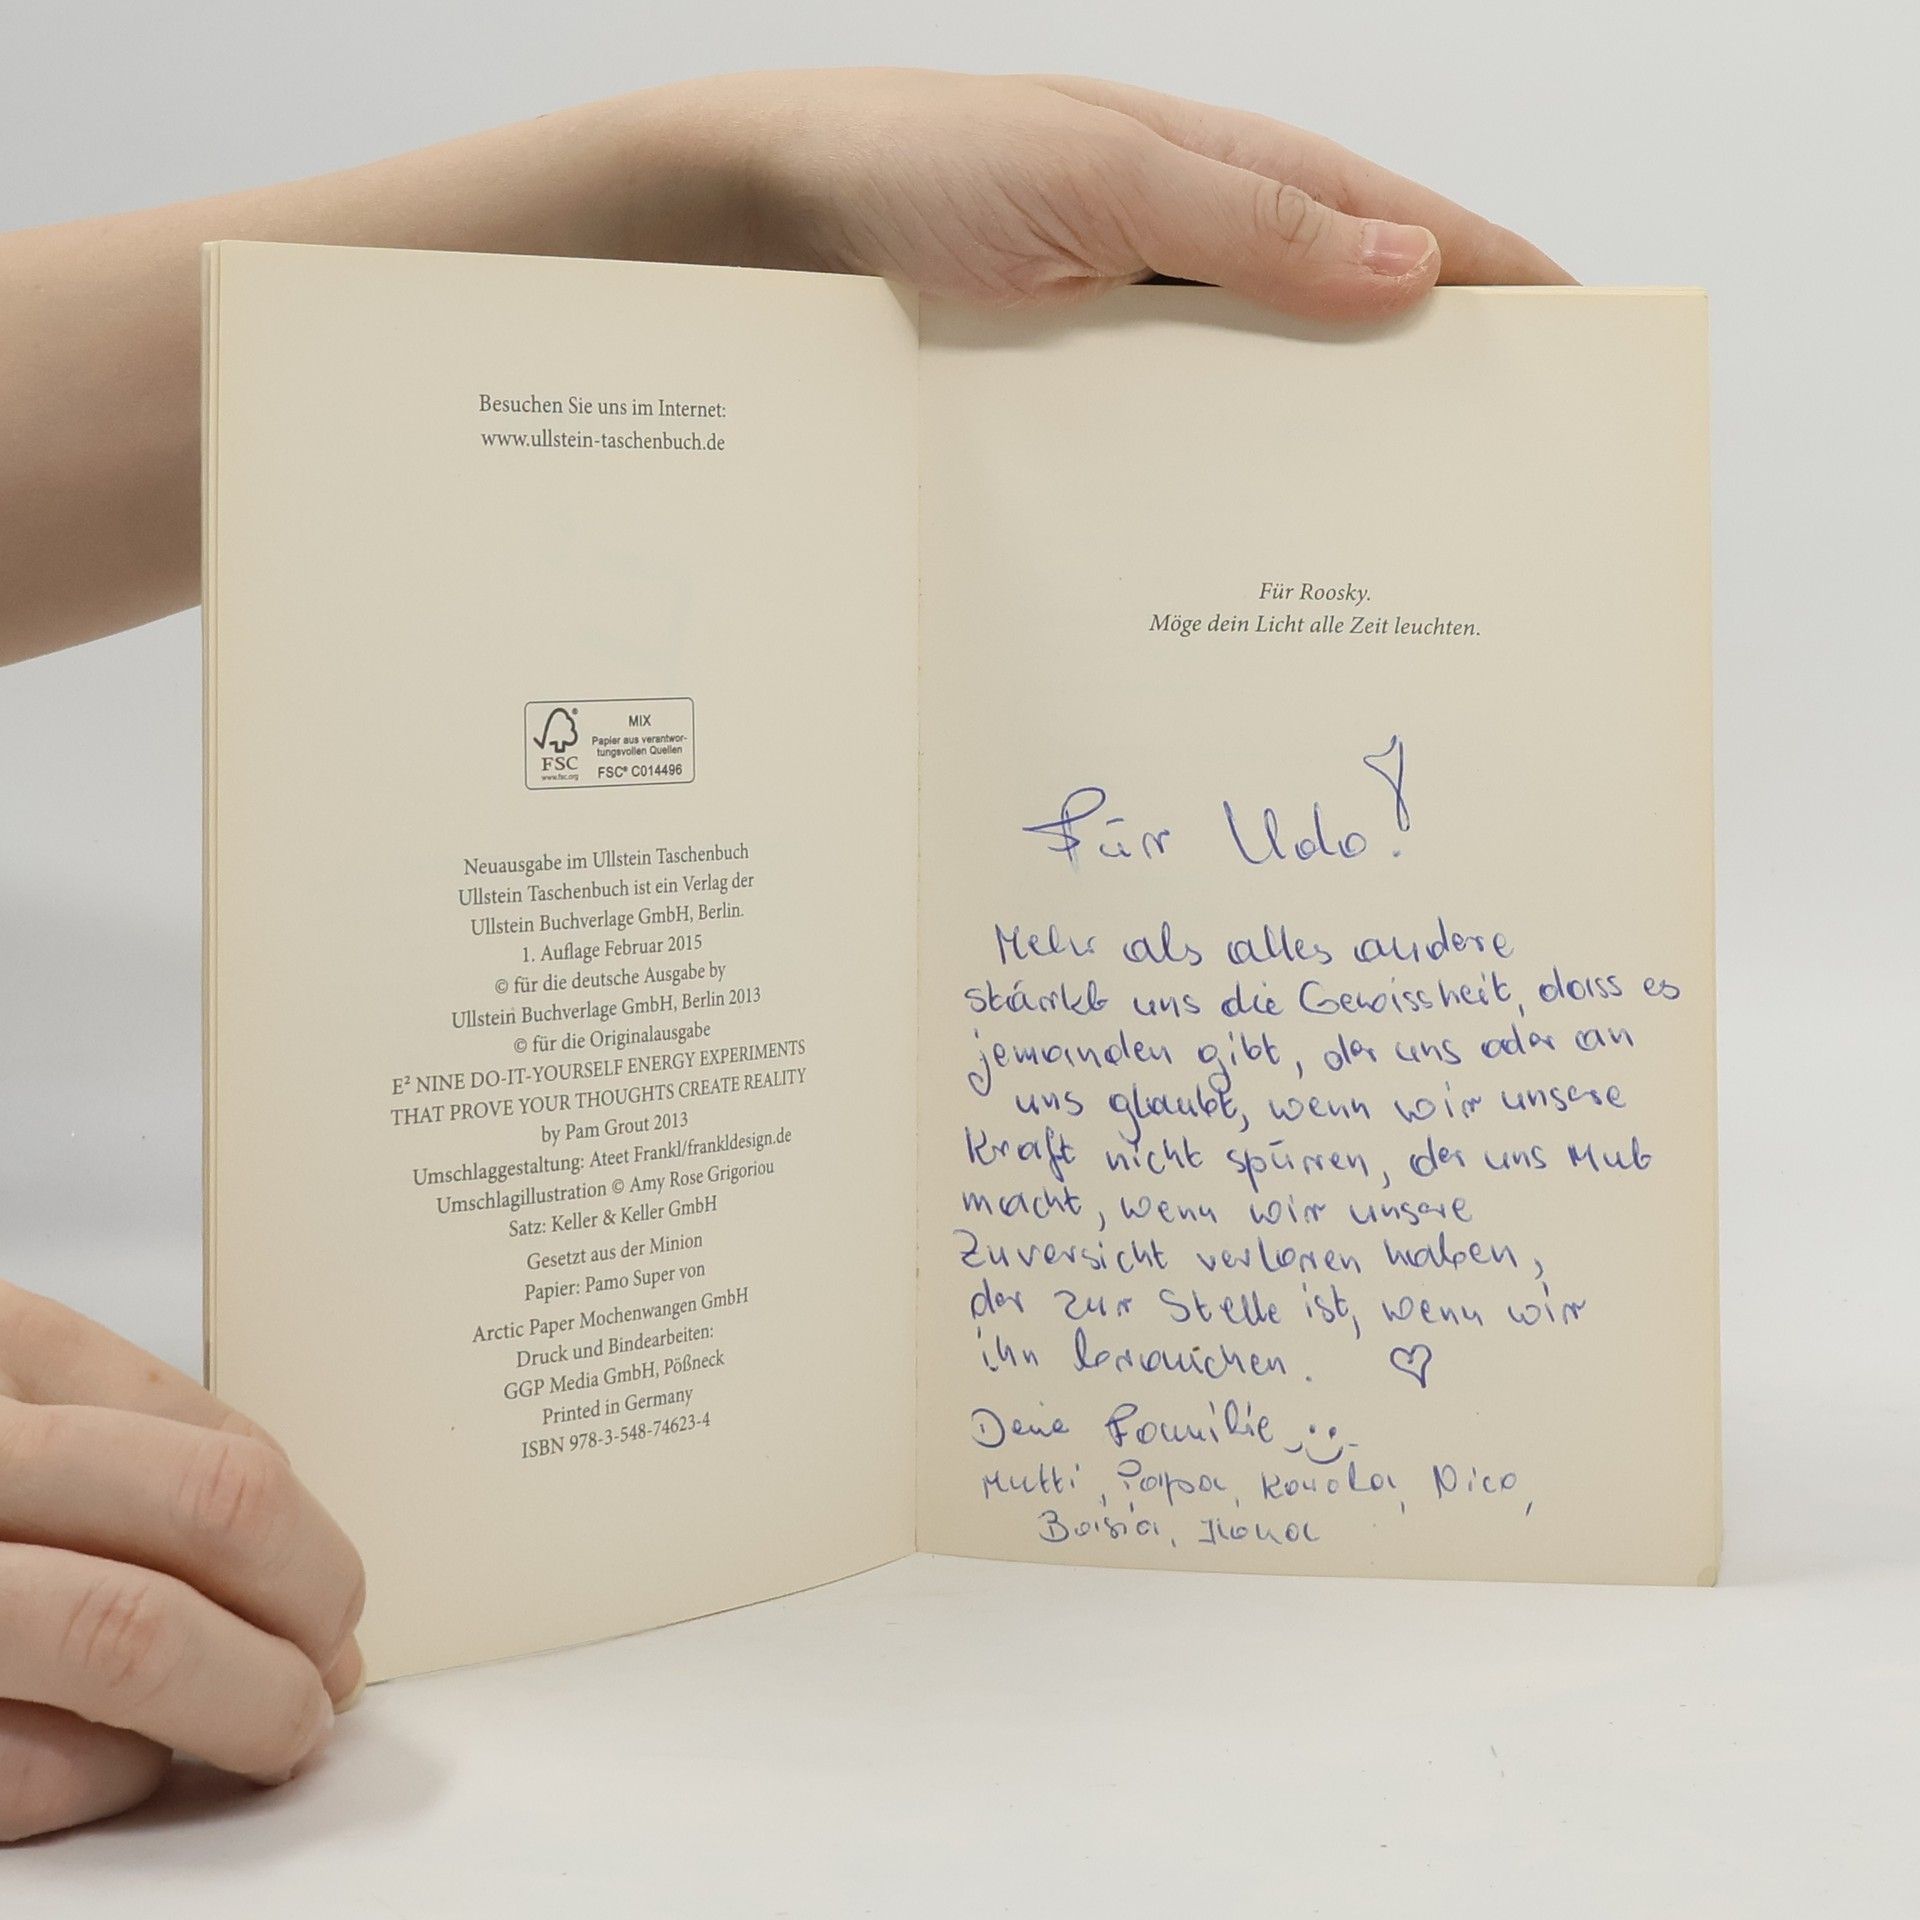 Besuchen Sie uns im Internet:
www.ullstein-taschenbuch.de
FSC®
www.fsc.org
MIX
Papier aus verantwor-
tungsvollen Quellen
FSC® C014496
Neuausgabe im Ullstein Taschenbuch
Ullstein Taschenbuch ist ein Verlag der
Ullstein Buchverlage GmbH, Berlin.
1. Auflage Februar 2015
© für die deutsche Ausgabe by
Ullstein Buchverlage GmbH, Berlin 2013
© für die Originalausgabe
E² NINE DO-IT-YOURSELF ENERGY EXPERIMENTS
THAT PROVE YOUR THOUGHTS CREATE REALITY
by Pam Grout 2013
Umschlaggestaltung: Ateet Frankl/frankldesign.de
Umschlagillustration © Amy Rose Grigoriou
Satz: Keller & Keller GmbH
Gesetzt aus der Minion
Papier: Pamo Super von
Arctic Paper Mochenwangen GmbH
Druck und Bindearbeiten:
GGP Media GmbH, Pößneck
Printed in Germany
ISBN 978-3-548-74623-4
Für Roosky.
Möge dein Licht alle Zeit leuchten.
Für Udo!
Mehr als alles andere
stärkt uns die Gewissheit, dass es
jemanden gibt, der uns oder an
uns glaubt, wenn wir unsere
Kraft nicht spüren, der uns Mut
macht, wenn wir unsere
Zuversicht verloren haben,
der zur Stelle ist, wenn wir
ihn brauchen.
Deine Familie
Mutti, Papa, Karola, Nico,
Ilona